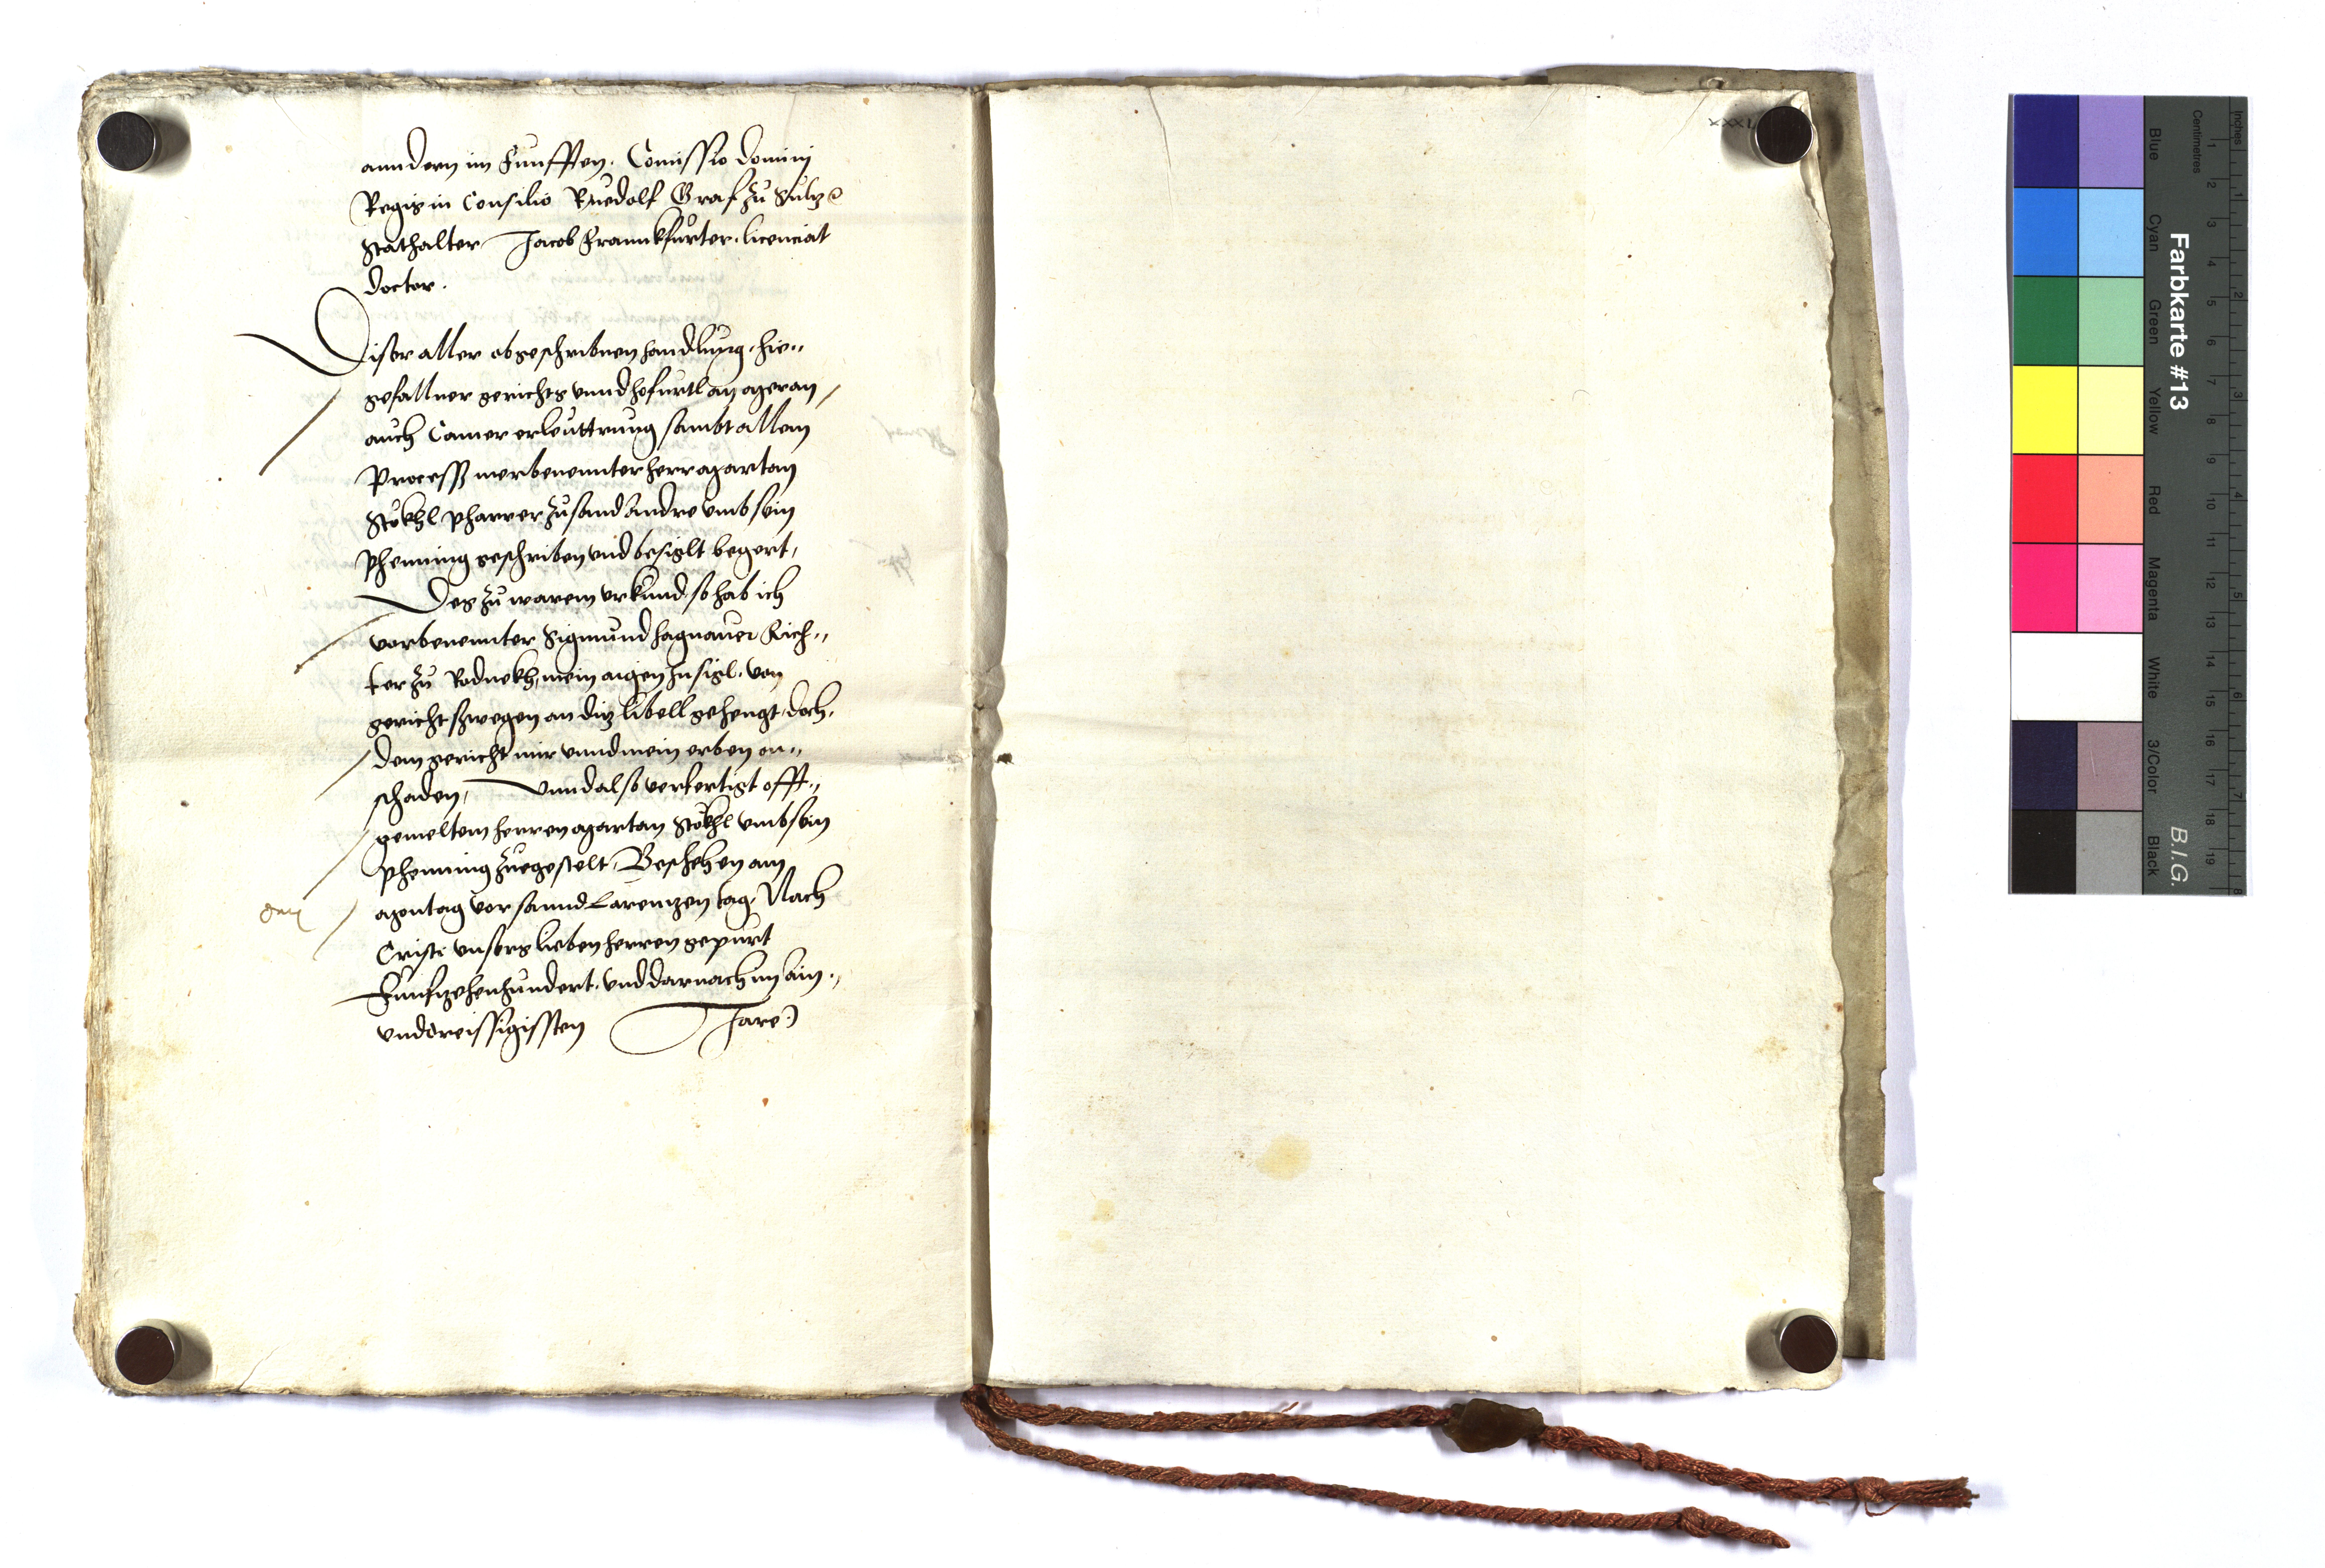 anndern im Funfften. Comissio domini
Regis in Consilio Ruedolf Graf zu Sultz
Stathalter Jacob Frannkfurter. licenciat
doctor.
Diser aller obgeschribnen handlung. hie„
gefallner gerichts unnd hofurtl an
auch Camer erleuttrung sambt allem
Process merbenennter herr Martan
Stökhl pharrer zu sand Andre umb sein
phenning geschriben und besiglt begert,
Des zu warem urkund so hab ich
vorbenennter Sigmund Hagnauer Rich„
ter zu Rodnekh, mein aigen Insigl. von
gericht s wegen an ditz libell gehengt, doch,
dem gericht mir unnd mein erben on„
schaden, Unnd also verfertigt offt„
gemeltem herren Martan Stökhl umb sein
phenning zuegestelt, Beschehen am
Montag vor sannd Larenntzen tag, Nach
Cristi unsers lieben herren gepurt
Funfzehenhundert. und darnach im ain.„
unddreissigissten Jare
XXXL
Farbkarte #13
B.I.G.
Inches
Centimetres
Blue Cyan Green Yellow Red Magenta White 3/Color Black
1 2 3 4 5 6 7 8 9 10 11 12 13 14 15 16 17 18 19
1 2 3 4 5 6 7 8